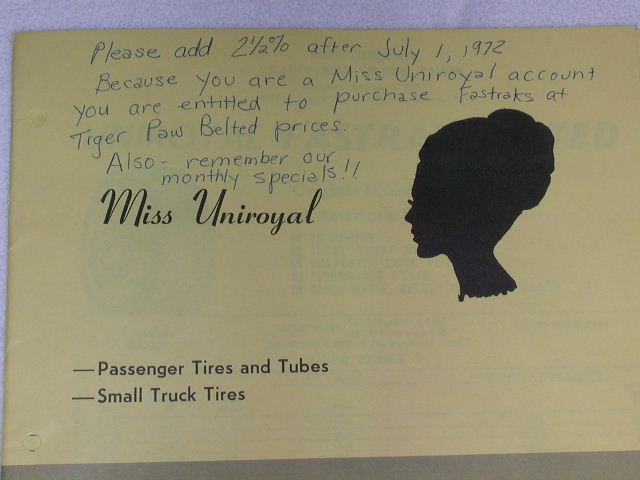 Please add 2½% after July 1, 1972
Because you are a Miss Uniroyal account
you are entitled to purchase Fastraks at
Tiger Paw Belted prices.
Also - remember our
monthly specials!!
Miss Uniroyal
—Passenger Tires and Tubes
—Small Truck Tires